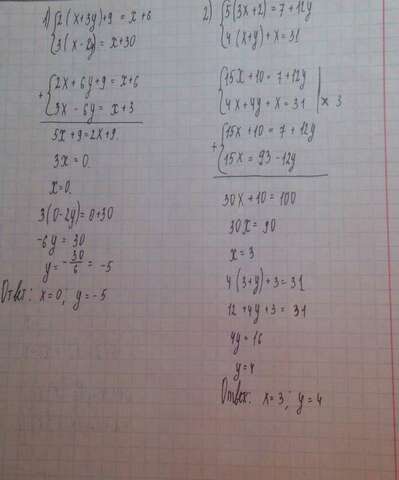 1) { 2(x+3y)+9 = x+6
3(x-2y) = x+30
+ { 2x+6y+9 = x+6
3x - 6y = x+3
5x+9=2x+9.
3x = 0.
x=0.
3(0-2y)=0+30
-6y = 30
y = - 30/6 = -5
Ответ: x=0; y=-5
2) { 5(3x+2)=7+12y
4(x+y)+x=31
{ 15x+10=7+12y
4x+4y+x=31 | x 3
+ { 15x+10=7+12y
15x = 93-12y
30x+10=100
30x=90
x=3
4(3+y)+3=31
12+4y+3=31
4y=16
y=4
Ответ: x=3; y=4